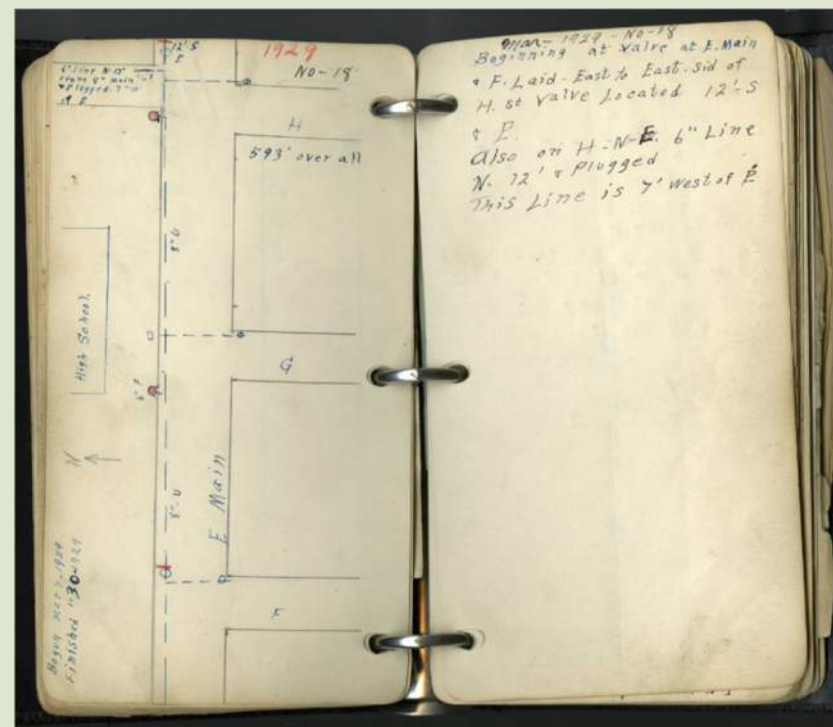 12'-S
E
1929
No-18
6" Line N-12'
From 8" Main
& Plugged 7' W
of E
H
593' over all
8"-U
High School
G
6"
N
E Main
8"-U
F
Begun Mar 7-1929
Finished "30-1929
Mar- 1929-No-18
Beginning at Valve at E. Main
& F. Laid-East to East-Sid of
H. st Valve Located 12'-S
& E.
Also on H-N-E. 6" Line
N. 12' & Plugged
This Line is 7' West of E